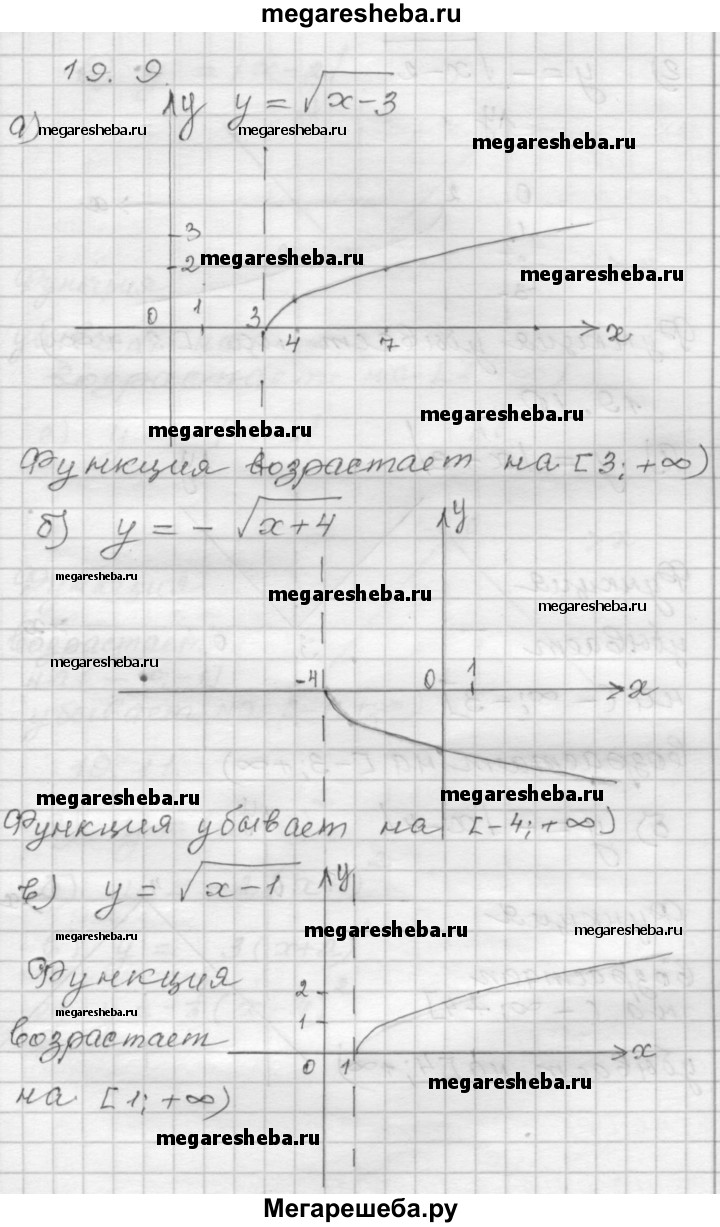 megaresheba.ru
19. 9
y y = √x-3
а) megaresheba.ru megaresheba.ru megaresheba.ru
3
megaresheba.ru
2 megaresheba.ru
0 1 3 4 7 x
megaresheba.ru
megaresheba.ru
Функция возрастает на [3; +∞)
б) y = - √x+4 y
megaresheba.ru
megaresheba.ru
megaresheba.ru
megaresheba.ru
-4 0 1 x
megaresheba.ru megaresheba.ru
Функция убывает на [-4; +∞)
в) y = √x-1 y
megaresheba.ru megaresheba.ru megaresheba.ru
Функция 2
megaresheba.ru
возрастает 1
0 1 x
на [1; +∞) megaresheba.ru
megaresheba.ru
Мегарешеба.ру